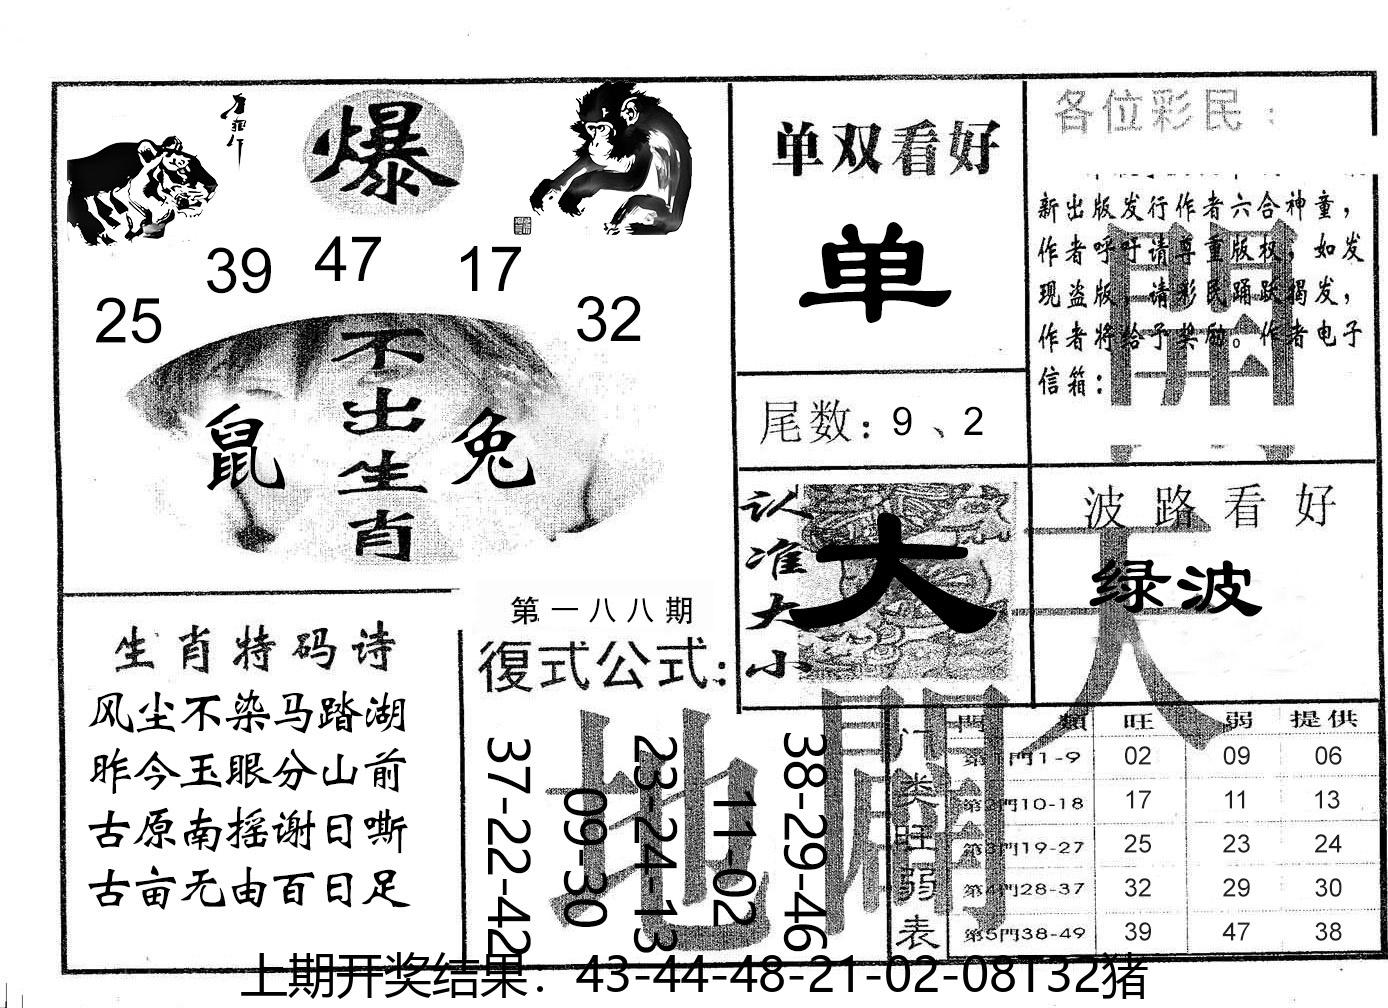 爆
25
39
47
17
32
不出生肖
鼠
兔
单双看好
单
尾数: 9 、2
各位彩民:
新出版发行作者六合神童，
作者呼吁请尊重版权，如发
现盗版，请彩民踊跃揭发，
作者将给予奖励。作者电子
信箱:
认准大小
大
波路看好
绿波
天
開
地
闢
生肖特码诗
风尘不染马踏湖
昨今玉眼分山前
古原南摇谢日嘶
古亩无由百日足
第一八八期
復式公式:
37-22-42
09-30
23-24-13
11-02
38-29-46
门类旺弱表
門類 旺 弱 提供
第1門1-9 02 09 06
第2門10-18 17 11 13
第3門19-27 25 23 24
第4門28-37 32 29 30
第5門38-49 39 47 38
上期开奖结果：43-44-48-21-02-08T32猪